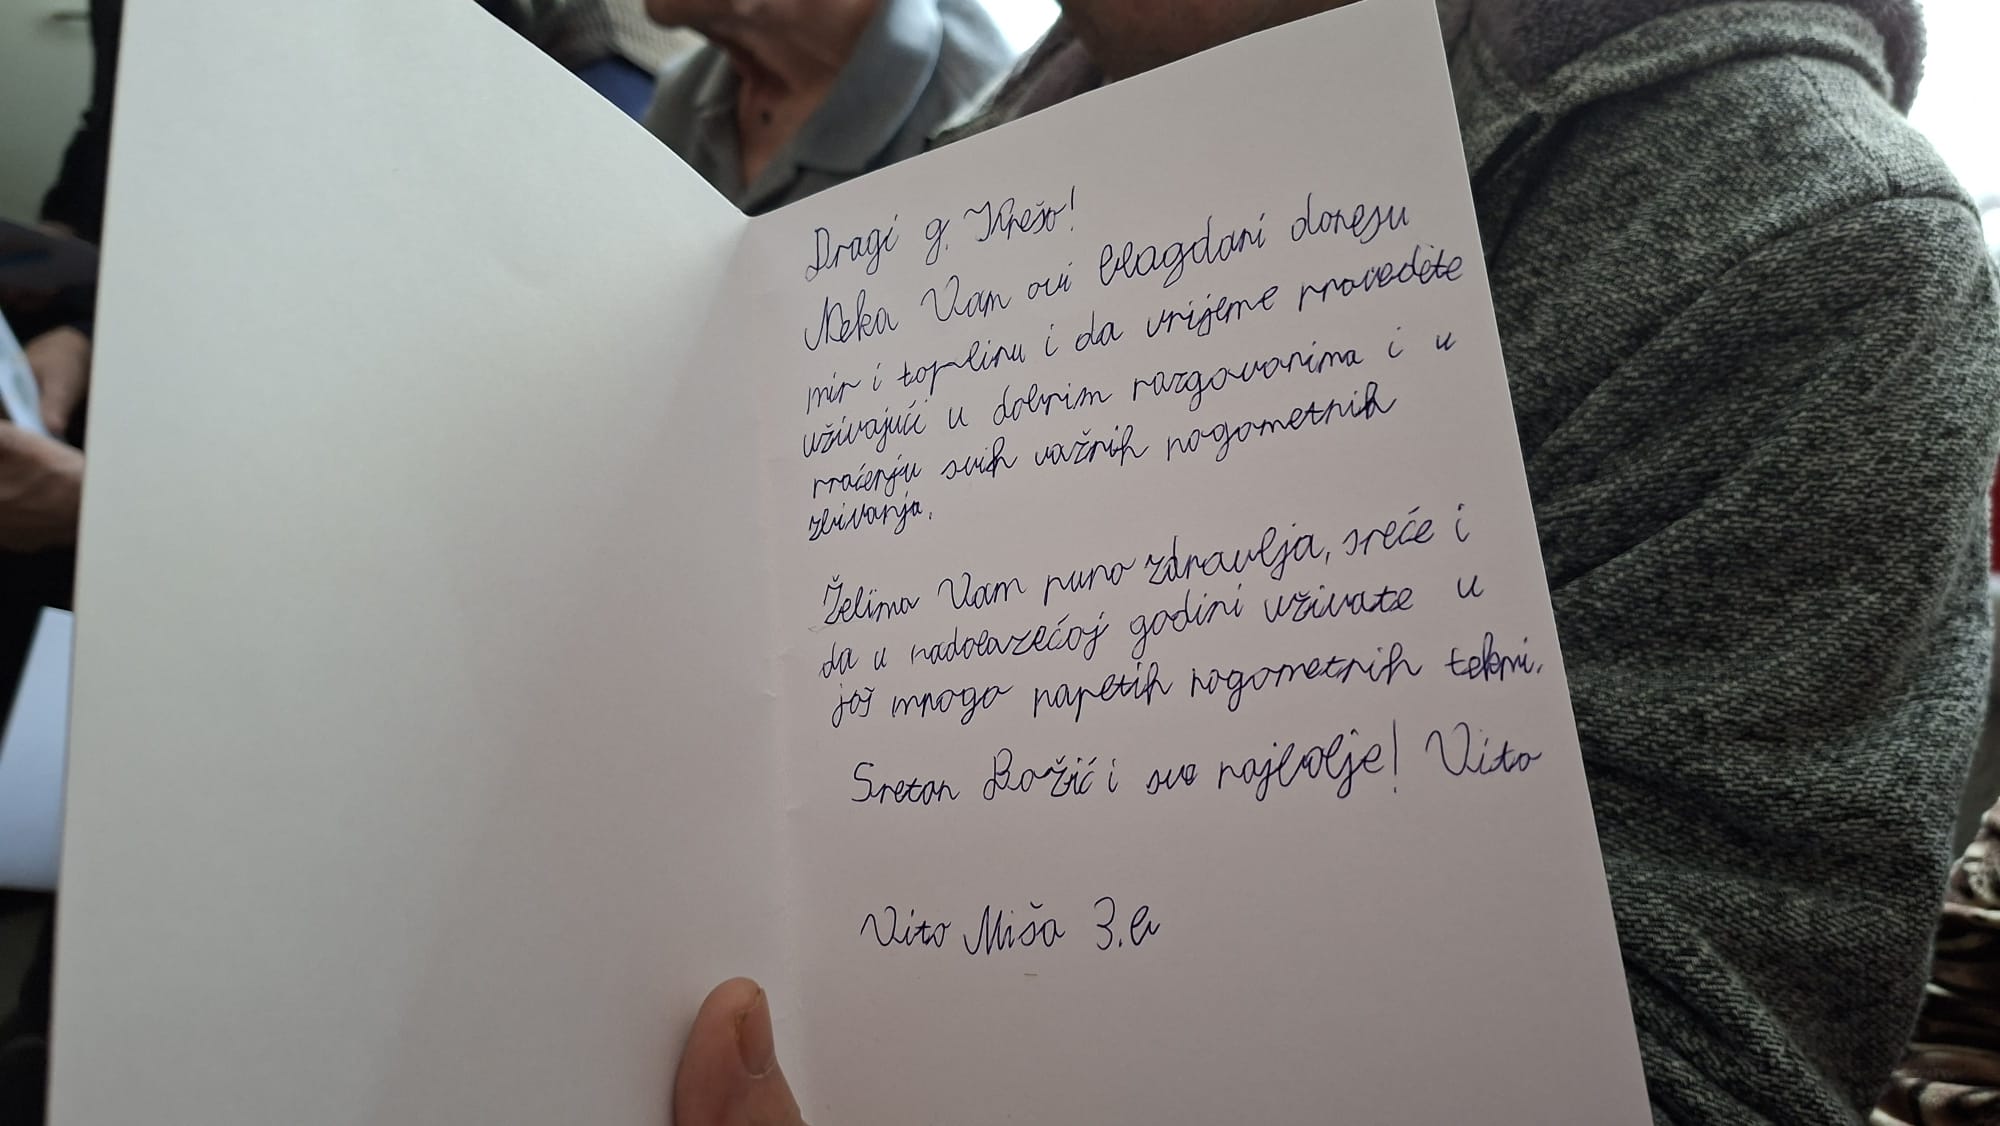 Dragi g. Krešo!
Neka Vam ovi blagdani donesu
mir i toplinu i da vrijeme provedete
uživajući u dobrim razgovorima i u
praćenju svih važnih nogometnih
zbivanja.
Želimo Vam puno zdravlja, sreće i
da u nadolazećoj godini uživate u
još mnogo napetih nogometnih tekmi.
Sretan Božić i sve najbolje! Vito
Vito Miša 3.b